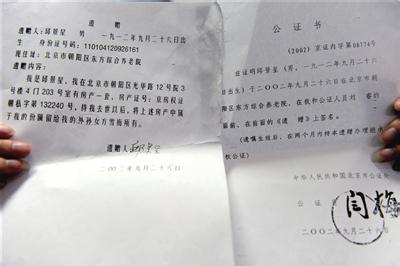 遗 赠
遗赠人: 邱景星 男 一九一二年九月二十六日出
生 身份证号码: 110104120926161
现住址: 北京市朝阳区东方综合养老院
遗赠内容:
我是邱景星,我在北京市朝阳区光华路12号院3
号楼4门203号室有房产一套,房产证号: 京房权证
朝私字第132240号,待我去世以后,将上述房产中属
于我的份额留给我的外孙女方雪梅所有。
遗赠人:
二00二年九月二十六日
公 证 书
(2002)京证内字第08774号
兹证明邱景星(男,一九一二年九月二十六日
出生)于二00二年九月二十六日在北京市朝
阳区东方综合养老院,在我和公证人员刘 睿的
面前,在前面的《遗 赠》上签名。
(遗嘱生效后,在两个月内持本遗赠办理继承
权公证)
中华人民共和国北京市公证处
公 证 员
闫梅
二00二年九月二十六日